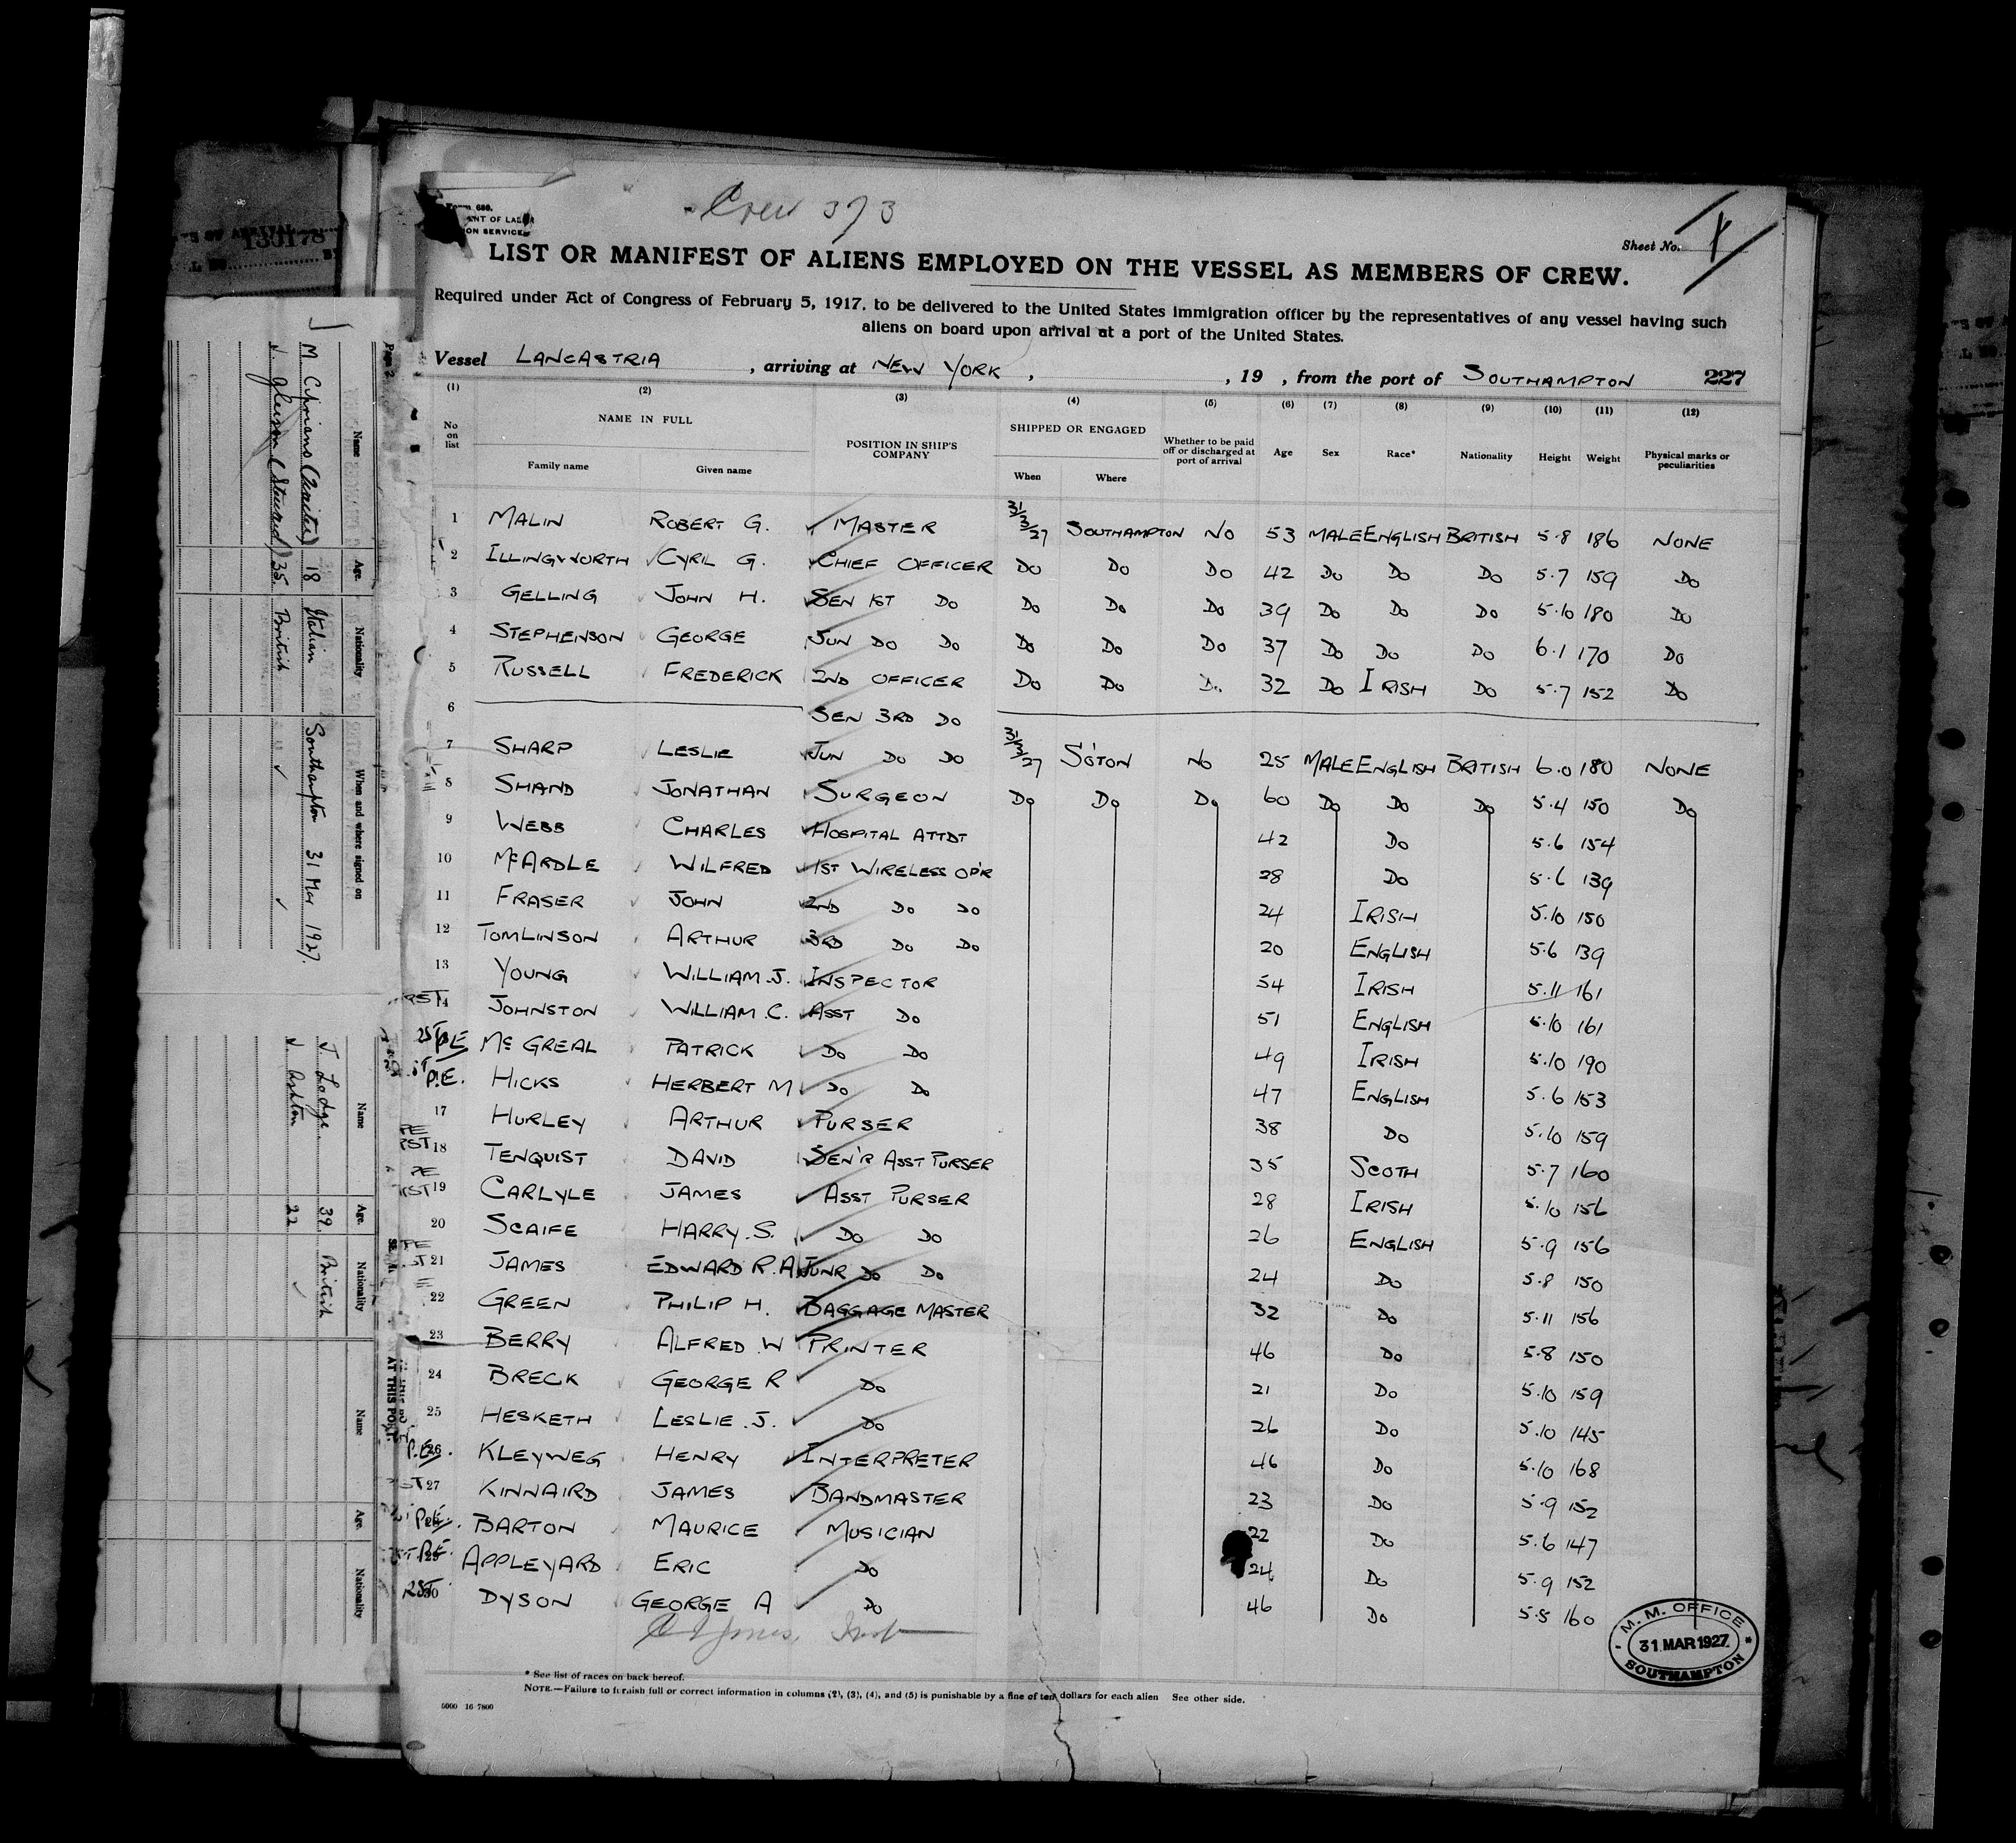 Crew 373
Form 686.
ENT OF LABOR
ION SERVICE
Sheet No. 1
LIST OR MANIFEST OF ALIENS EMPLOYED ON THE VESSEL AS MEMBERS OF CREW.
Required under Act of Congress of February 5, 1917, to be delivered to the United States immigration officer by the representatives of any vessel having such
aliens on board upon arrival at a port of the United States.
Vessel LANCASTRIA , arriving at NEW YORK , , 19 , from the port of SOUTHAMPTON 227
(1) (2) (3) (4) (5) (6) (7) (8) (9) (10) (11) (12)
No on list NAME IN FULL Family name Given name POSITION IN SHIP'S COMPANY SHIPPED OR ENGAGED When Where Whether to be paid off or discharged at port of arrival Age Sex Race* Nationality Height Weight Physical marks or peculiarities
1 MALIN ROBERT G. MASTER 31/3/27 SOUTHAMPTON NO 53 MALE ENGLISH BRITISH 5.8 186 NONE
2 ILLINGWORTH CYRIL G. CHIEF OFFICER DO DO DO 42 DO DO DO 5.7 159 DO
3 GELLING JOHN H. SEN 1ST DO DO DO DO 39 DO DO DO 5.10 180 DO
4 STEPHENSON GEORGE JUN DO DO DO DO DO 37 DO DO DO 6.1 170 DO
5 RUSSELL FREDERICK 2ND OFFICER DO DO Do 32 DO IRISH DO 5.7 152 DO
6 SEN 3RD DO
7 SHARP LESLIE JUN DO DO 31/3/27 SO'TON NO 25 MALE ENGLISH BRITISH 6.0 180 NONE
8 SHAND JONATHAN SURGEON DO DO DO 60 DO DO DO 5.4 150 DO
9 WEBB CHARLES HOSPITAL ATTDT 42 DO 5.6 154
10 McARDLE WILFRED 1ST WIRELESS OP'R 28 DO 5.6 139
11 FRASER JOHN 2ND DO DO 24 IRISH 5.10 150
12 TOMLINSON ARTHUR 3RD DO DO 20 ENGLISH 5.6 139
13 YOUNG WILLIAM.J. INSPECTOR 54 IRISH 5.11 161
RST 14 JOHNSTON WILLIAM.C. ASST DO 51 ENGLISH 5.10 161
PE Mc GREAL PATRICK DO DO 49 IRISH 5.10 190
P.E. HICKS HERBERT M DO DO 47 ENGLISH 5.6 153
17 HURLEY ARTHUR PURSER 38 DO 5.10 159
PE RST 18 TENQUIST DAVID SEN'R ASST PURSER 35 SCOTH 5.7 160
PE RST 19 CARLYLE JAMES ASST PURSER 28 IRISH 5.10 156
20 SCAIFE HARRY.S. DO DO 26 ENGLISH 5.9 156
PE ST 21 JAMES EDWARD R.A JUNR DO DO 24 DO 5.8 150
22 GREEN PHILIP H. BAGGAGE MASTER 32 DO 5.11 156
23 BERRY ALFRED.W PRINTER 46 DO 5.8 150
24 BRECK GEORGE R DO 21 DO 5.10 159
25 HESKETH LESLIE.J. DO 26 DO 5.10 145
P.E. 26 KLEYWEG HENRY INTERPRETER 46 DO 5.10 168
ST 27 KINNAIRD JAMES BANDMASTER 23 DO 5.9 152
P.E. BARTON MAURICE MUSICIAN 22 DO 5.6 147
P.E. APPLEYARD ERIC DO 24 DO 5.9 152
RST 30 DYSON GEORGE A DO 46 DO 5.8 160
M. M. OFFICE
31 MAR 1927
SOUTHAMPTON
* See list of races on back hereof.
NOTE.—Failure to furnish full or correct information in columns (2), (3), (4), and (5) is punishable by a fine of ten dollars for each alien See other side.
5000 16 7800
130178
Page 2
Name Age. Nationality When and where signed on
M Cipriano (Waiter) 18 Italian Southampton 31 Mar 1927.
J. Gleeson (Steward) 35 British
Name Age. Nationality Name Age. Nationality
J. Lodge. 39 British
J. Ashton 22
AT THIS PORT.